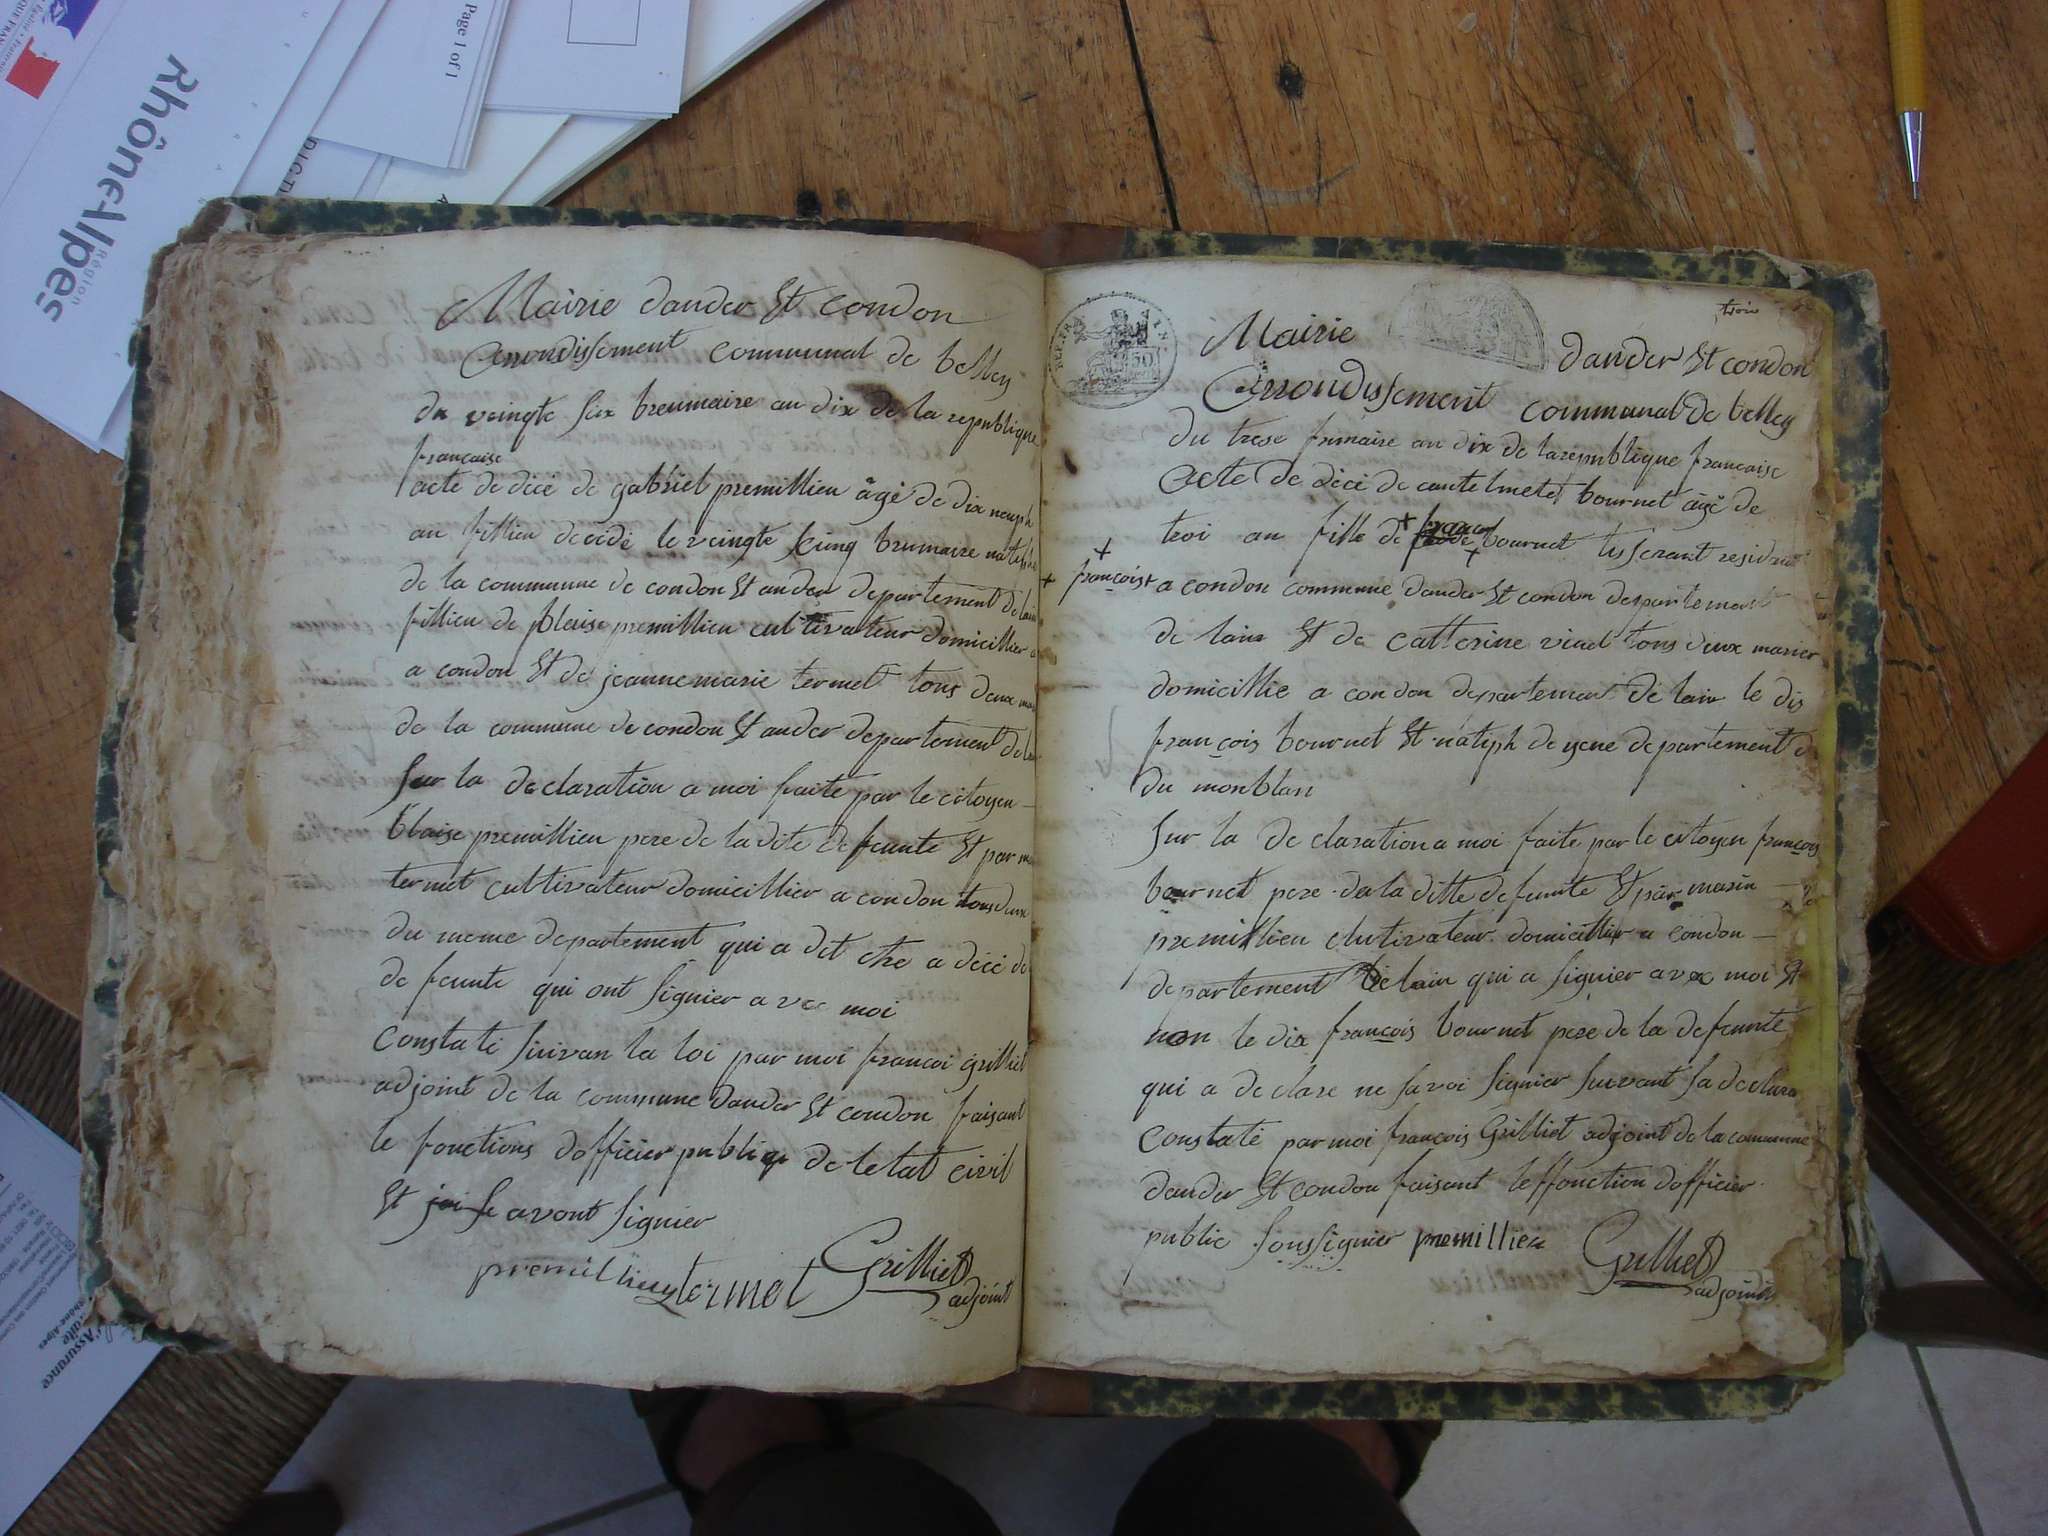 Rhône-Alpes
Région
Page 1 of 1
Mairie dander Et condon
Arrondissement communal de belley
du veingte six breumaire an dix de la republique
francaise
acte de décé de gabriel premillieu âgé de dix neuph
an fillieu decédé le veingte sinq brumaire natif
de la commune de condon Et ander departement de lain
fillieu de blaise premillieu cultivateur domicillier
a condon Et de jeanne marie termet tous deux
de la commune de condon Et ander departement de lain
Sur la declaration a moi faite par le citoyen
blaise premillieu pere de la dite defeunte Et par
termet cultivateur domicillier a condon tous deux
du meme departement qui a dit etre a décé de
defeunte qui ont signier avec moi
Constaté suivan la loi par moi francoi grilliet
adjoint de la commune dander Et condon faisant
le fonctions dofficier publiqe de letat civil
Et jai se avont signier
premillieu termet Grilliet
adjoint
trois
REP. FRA
Mairie
dander Et condon
Arrondissement communal de belley
du trese frimaire an dix de la republique francaise
Acte de décé de bournet âgé de
troi an fille de bournet tisserant residant
+ françois + a condon commune dander Et condon departement
de lain Et de catterine viuel tous deux marier
domicillie a condon departement de lain le dis
françois bournet Et natiph de yene departement
du monblan
Sur la declaration a moi faite par le citoyen françois
bournet pere de la ditte defeunte Et par marin
premillieu clutivateur domicillier a condon
departement de lain qui a signier avec moi Et
non le dix françois bournet pere de la defeunte
qui a declare ne savoi signier suivant sa declara
Constaté par moi françois Grilliet adjoint de la commune
dander Et condon faisant leffonction dofficier
public soussignier premillieu Grilliet
adjoint
l'Assurance